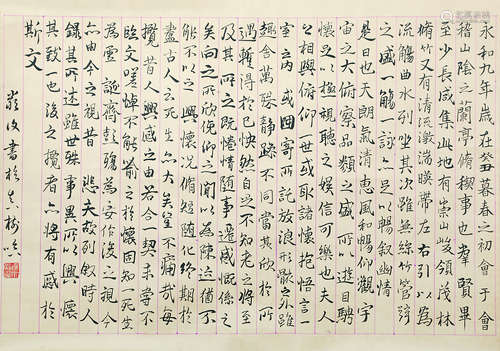 永和九年歲在癸丑暮春之初會于會
稽山陰之蘭亭脩稧事也羣賢畢
至少長咸集此地有崇山峻領茂林
脩竹又有清流激湍暎帶左右引以為
流觴曲水列坐其次雖無絲竹管弦
之盛一觴一詠亦足以暢敘幽情
是日也天朗氣清惠風和暢仰觀宇
宙之大俯察品類之盛所以遊目騁
懷足以極視聽之娛信可樂也夫人
之相與俯仰一世或取諸懷抱悟言一
室之內或因寄所託放浪形骸之外雖
趣舍萬殊靜躁不同當其欣於所
遇暫得於己怏然自足不知老之將至
及其所之既惓情隨事遷感慨係之
矣向之所欣俛仰之間以為陳迹猶不
能不以之興懷況脩短隨化終期於
盡古人云死生亦大矣豈不痛哉每
攬昔人興感之由若合一契未嘗不
臨文嗟悼不能喻之於懷固知一死生
為虛誕齊彭殤為妄作後之視今
亦由今之視昔悲夫故列敘時人
錄其所述雖世殊事異所以興懷
其致一也後之攬者亦將有感於
斯文
嚴復書於